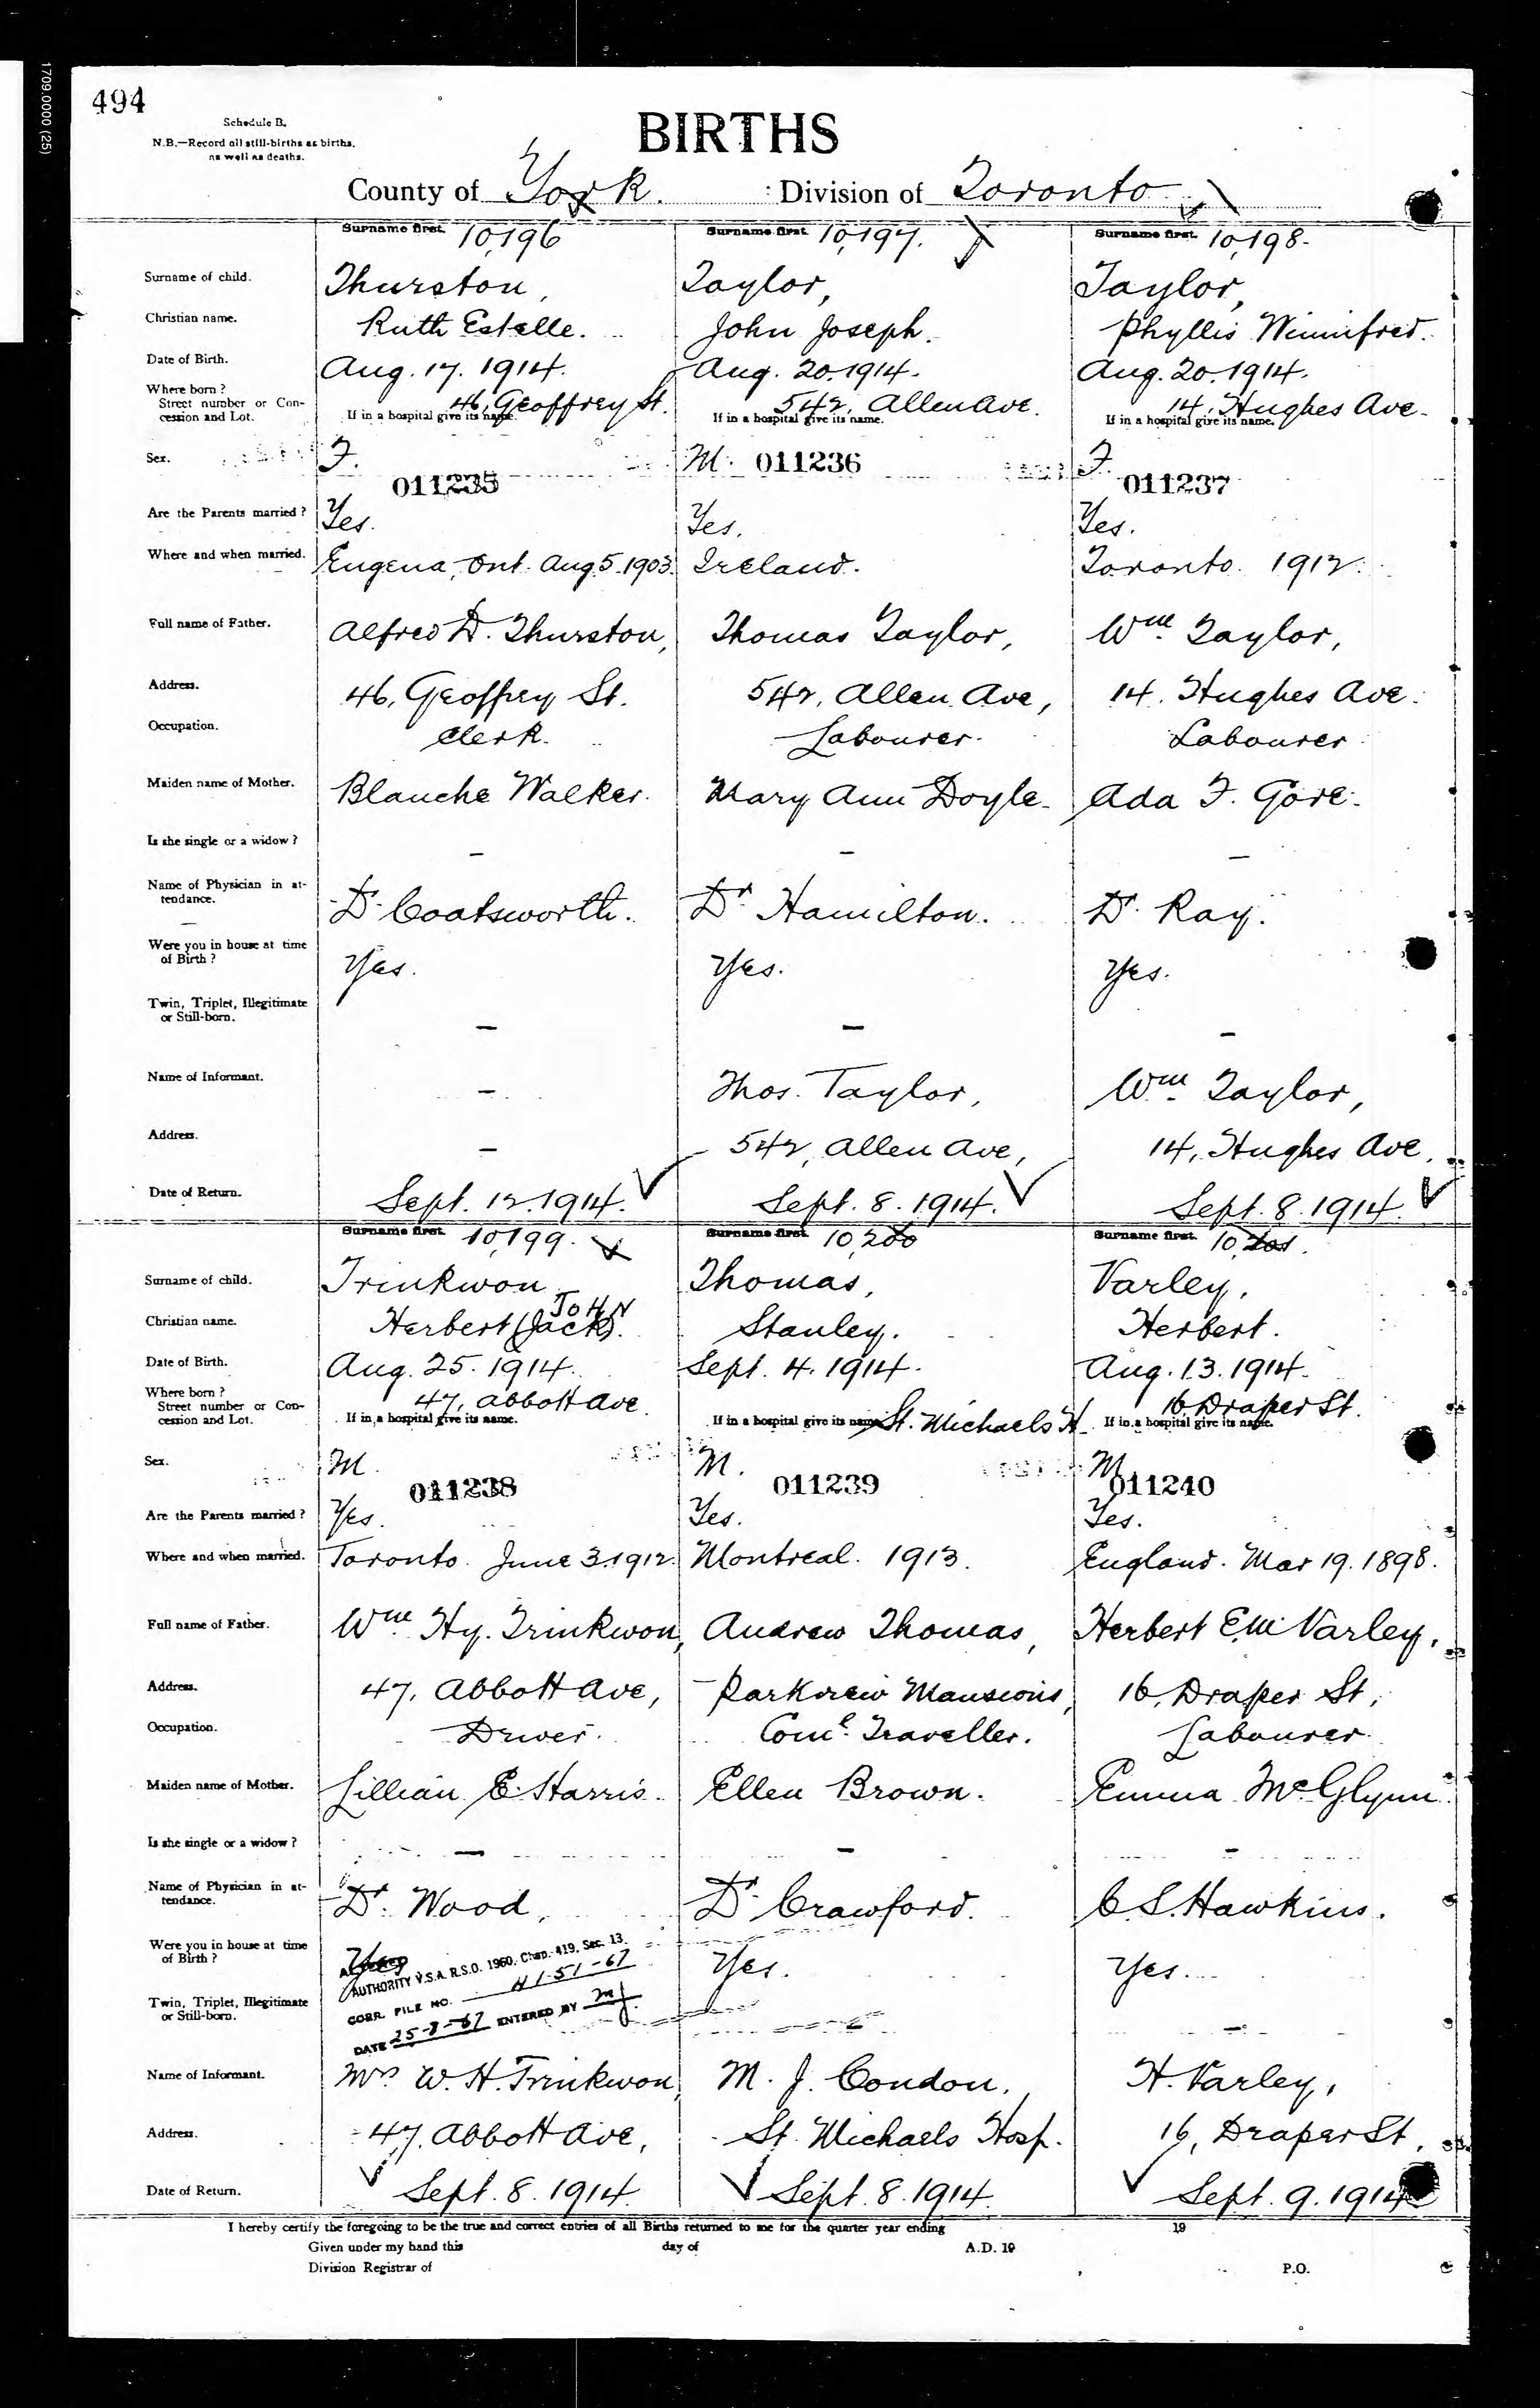 1709.0000 (25)
494
Schedule B.
N.B.—Record all still-births as births,
as well as deaths.
BIRTHS
County of York. Division of Toronto
Surname first. 10,196 Surname first. 10,197. Surname first. 10,198.
Surname of child. Thurston, Taylor, Taylor,
Christian name. Ruth Estelle. John Joseph. Phyllis Winnifred.
Date of Birth. Aug. 17. 1914. Aug. 20. 1914. Aug. 20. 1914.
Where born?
Street number or Con- 46, Geoffrey St. 542, Allen Ave. 14, Hughes Ave.
cession and Lot. If in a hospital give its name. If in a hospital give its name. If in a hospital give its name.
Sex. F. M. 011236 F.
011235 011237
Are the Parents married? Yes. Yes. Yes.
Where and when married. Eugena, Ont. Aug. 5. 1903. Ireland. Toronto. 1912.
Full name of Father. Alfred D. Thurston, Thomas Taylor, Wm. Taylor,
Address. 46, Geoffrey St. 542, Allen Ave, 14, Hughes Ave.
Occupation. Clerk. Labourer. Labourer
Maiden name of Mother. Blanche Walker. Mary Ann Doyle. Ada F. Gore.
Is she single or a widow? — — —
Name of Physician in at-
tendance. Dr. Coatsworth. Dr. Hamilton. Dr. Ray.
Were you in house at time
of Birth? Yes. Yes. Yes.
Twin, Triplet, Illegitimate
or Still-born. — — —
Name of Informant. — Thos. Taylor, Wm. Taylor,
Address. — 542, Allen Ave, 14, Hughes Ave.
Date of Return. Sept. 12. 1914. ✓ Sept. 8. 1914. ✓ Sept. 8. 1914. ✓
Surname first. 10,199. Surname first. 10,200 Surname first. 10,201.
Surname of child. Trinkwon Thomas, Varley,
JOHN
Christian name. Herbert (Jack). Stanley. Herbert.
Date of Birth. Aug. 25. 1914. Sept. 4. 1914. Aug. 13. 1914.
Where born?
Street number or Con- 47, Abbott Ave. 16 Draper St.
cession and Lot. If in a hospital give its name. If in a hospital give its name. St. Michaels H. If in a hospital give its name.
Sex. M. M. M.
011238 011239 011240
Are the Parents married? Yes. Yes. Yes.
Where and when married. Toronto. June 3. 1912. Montreal. 1913. England. Mar 19. 1898.
Full name of Father. Wm. Hy. Trinkwon, Andrew Thomas, Herbert E.M. Varley,
Address. 47, Abbott Ave, Parkview Mansions, 16, Draper St,
Occupation. Driver. Coml. Traveller. Labourer.
Maiden name of Mother. Lillian E. Harris. Ellen Brown. Emma McGlynn.
Is she single or a widow? — — —
Name of Physician in at-
tendance. Dr. Wood, Dr. Crawford. C. S. Hawkins.
Were you in house at time
of Birth? Yes Yes. Yes.
AUTHORITY V.S.A. R.S.O. 1960, Chap. 419, Sec. 13.
Twin, Triplet, Illegitimate
or Still-born. — —
CORR. FILE NO.
DATE 25-8-67 ENTERED BY
Name of Informant. Mrs. W. H. Trinkwon, M. J. Condon, H. Varley,
Address. 47, Abbott Ave, St. Michaels Hosp. 16, Draper St,
Date of Return. ✓ Sept. 8. 1914. ✓ Sept. 8. 1914. ✓ Sept. 9. 1914
I hereby certify the foregoing to be the true and correct entries of all Births returned to me for the quarter year ending 19
Given under my hand this day of A.D. 19
Division Registrar of P.O.